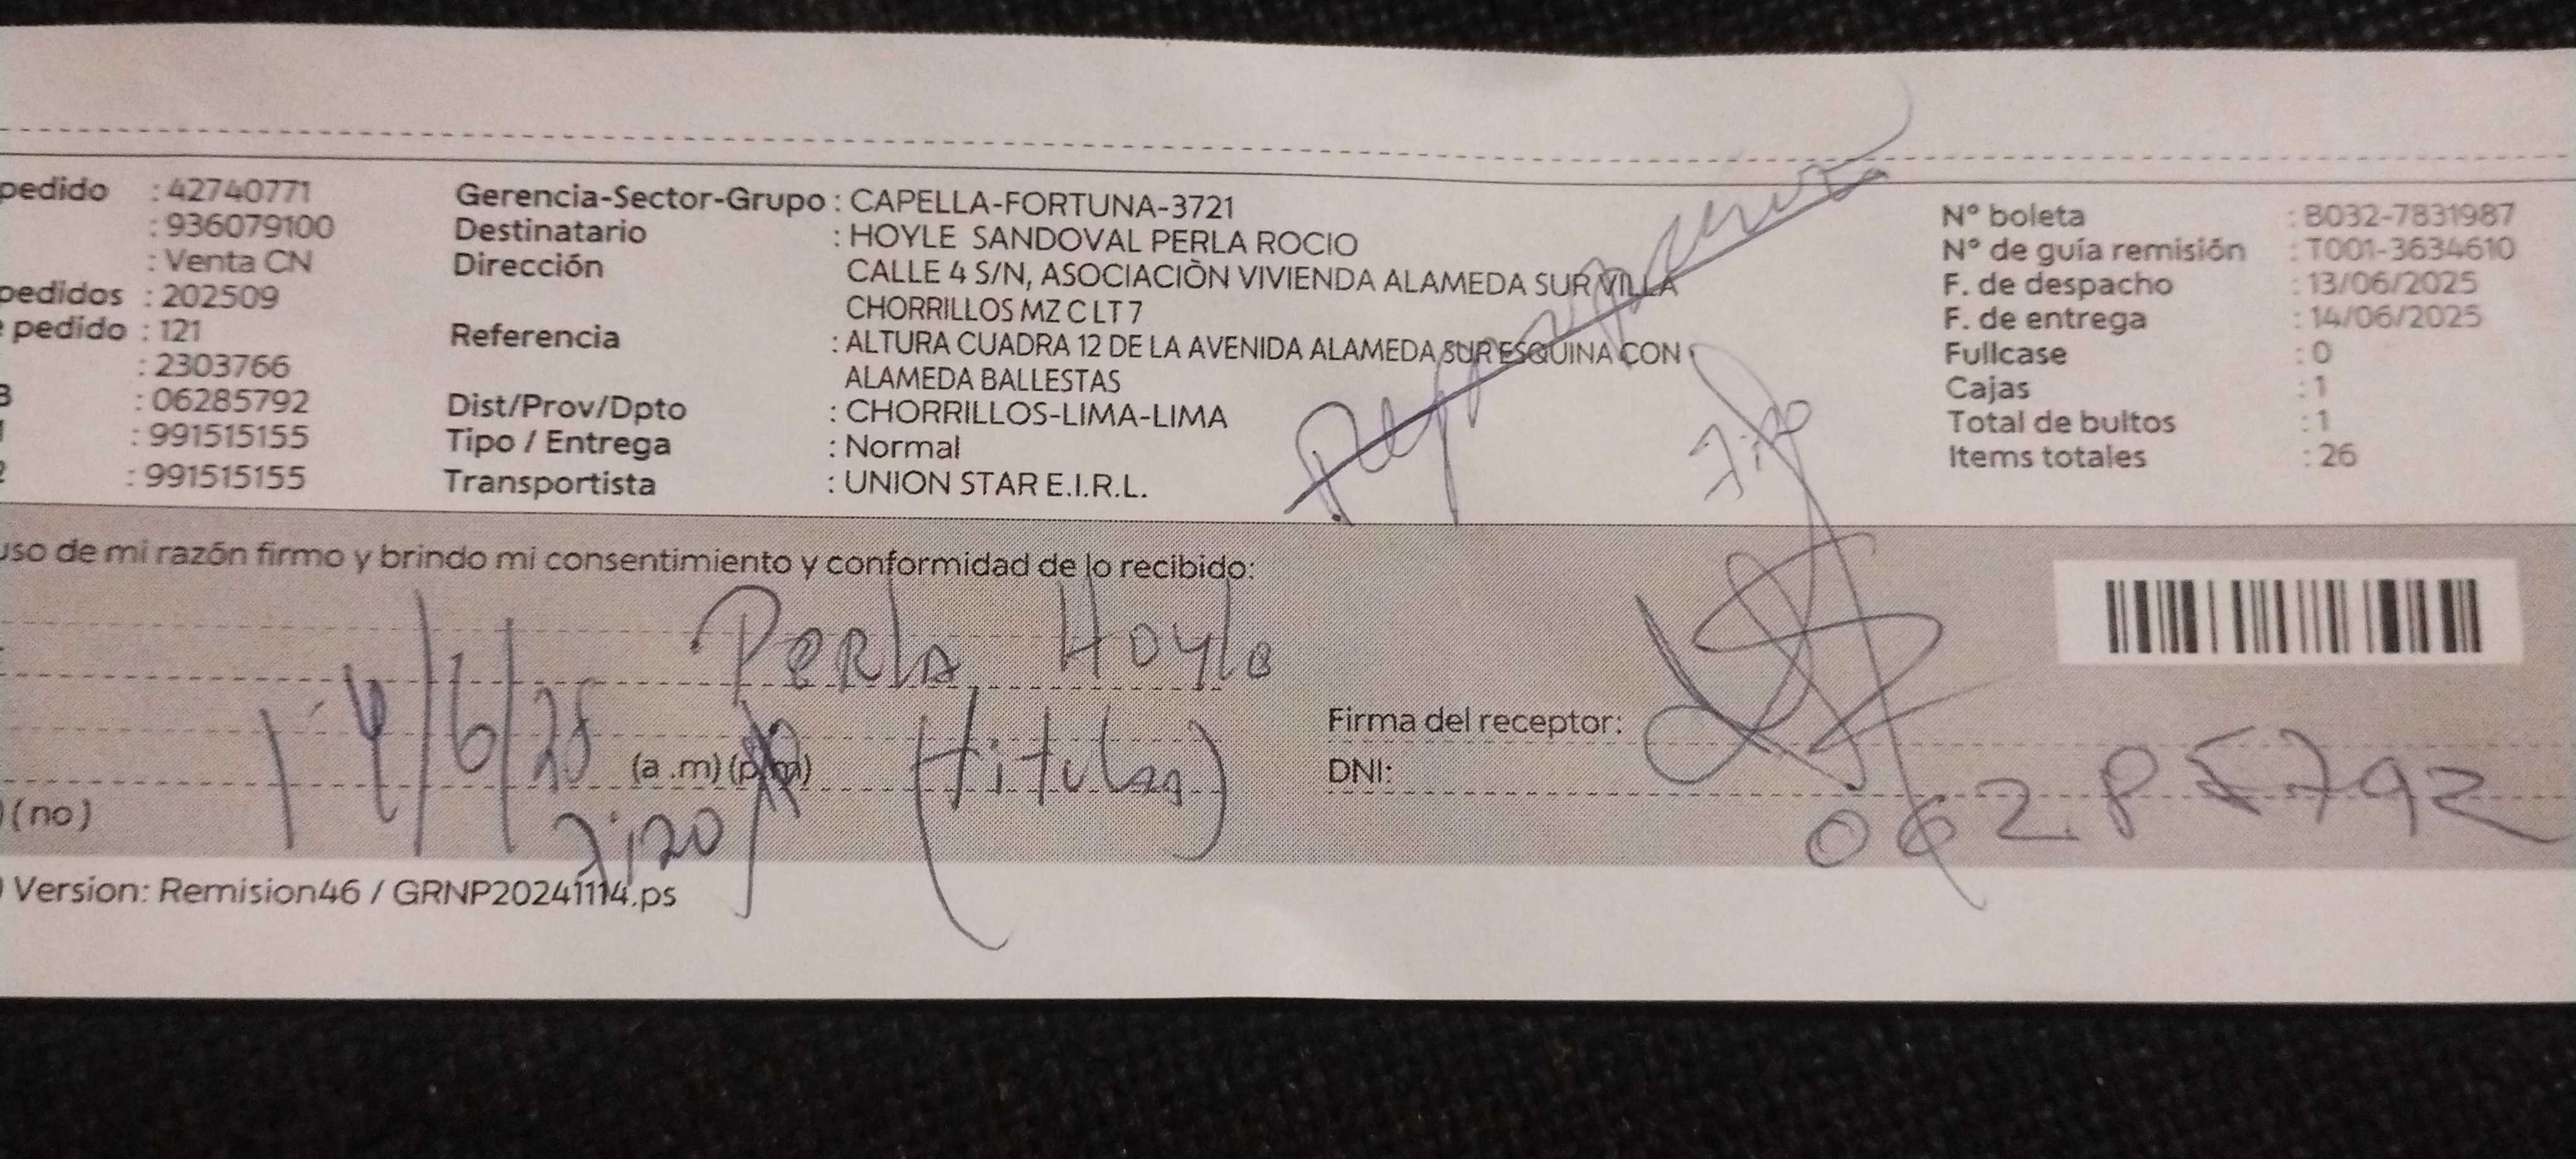 pedido : 42740771
: 936079100
: Venta CN
pedidos : 202509
pedido : 121
: 2303766
: 06285792
: 991515155
: 991515155
Gerencia-Sector-Grupo : CAPELLA-FORTUNA-3721
Destinatario : HOYLE SANDOVAL PERLA ROCIO
Dirección CALLE 4 S/N, ASOCIACIÒN VIVIENDA ALAMEDA SUR VILLA
CHORRILLOS MZ C LT 7
Referencia : ALTURA CUADRA 12 DE LA AVENIDA ALAMEDA SUR ESQUINA CON
ALAMEDA BALLESTAS
Dist/Prov/Dpto : CHORRILLOS-LIMA-LIMA
Tipo / Entrega : Normal
Transportista : UNION STAR E.I.R.L.
Nº boleta : B032-7831987
Nº de guía remisión : T001-3634610
F. de despacho : 13/06/2025
F. de entrega : 14/06/2025
Fullcase : 0
Cajas : 1
Total de bultos : 1
Items totales : 26
uso de mi razón firmo y brindo mi consentimiento y conformidad de lo recibido:
Perla Hoyle
14/6/25
(a .m) (p.m)
(titular)
Firma del receptor:
DNI: 06285792
(no)
Version: Remision46 / GRNP20241114.ps